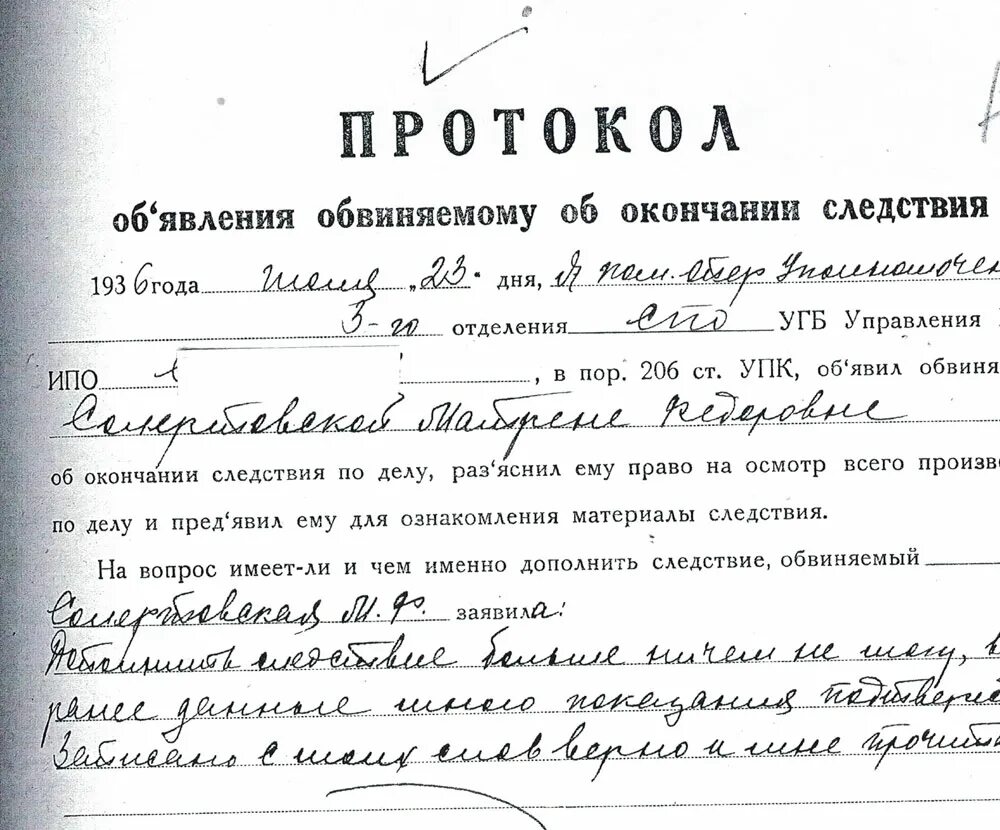 ПРОТОКОЛ
об‘явления обвиняемому об окончании следствия
1936 года июля „23" дня, Я пом. Опер Уполномочен
3-го отделения СПО УГБ Управления
ИПО , в пор. 206 ст. УПК, об‘явил обвиня
Матрене Федоровне
об окончании следствия по делу, раз‘яснил ему право на осмотр всего произв
по делу и пред‘явил ему для ознакомления материалы следствия.
На вопрос имеет-ли и чем именно дополнить следствие, обвиняемый
М. Ф. заявила:
Дополнить следствие больше ничем не могу,
ранее данные мною показания подтвержд
Записано с моих слов верно и мне прочит